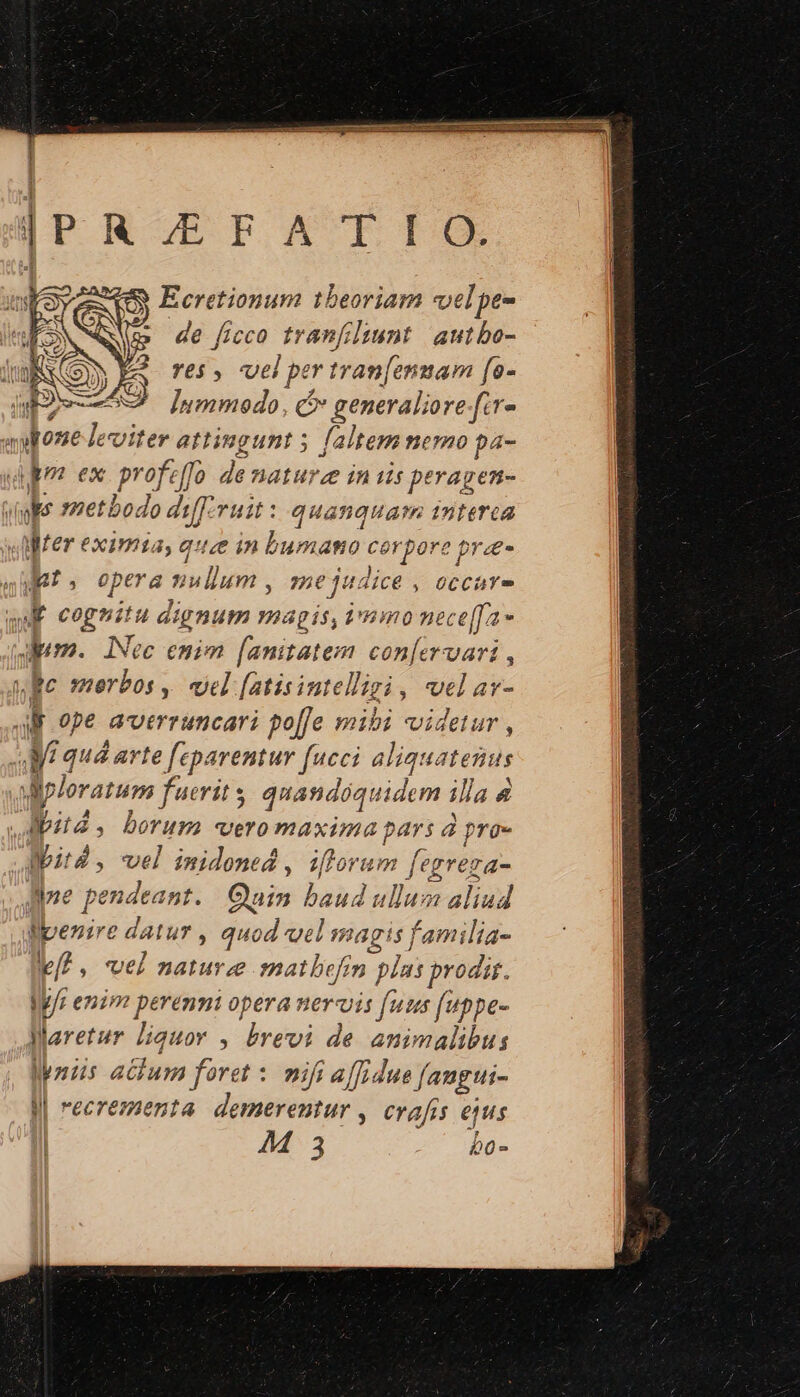 PRÆFATIO.
Ecretionum theoriam vel pe-
de ſicco tranſiliunt autho-
res, vel per tranſennam ſo-
lummodo, & generaliore ſer-
mone leviter attingunt; ſaltem nemo pa-
ex profeſſo de naturæ in iis peragen-
methodo diſſeruit: quanquam interea
inter eximia, quæ in humano corpore præ-
opera nullum, me judice, occur-
cognitu dignum magis, immo neceſſa-
Nec enim ſanitatem conſervari,
nec morbos, vel ſatis intelligi, vel ar-
ope averruncari poſſe mihi videtur,
niſi quâ arte ſeparentur ſucci aliquatenus
exploratum fuerit; quandoquidem illa à
horum vero maxima pars à pra-
vel inidoneâ, iſtorum ſegrega-
pendeant. Quin haud ullum aliud
invenire datur, quod vel magis familia-
vel naturæ matheſin plus prodit.
enim perenni opera nervis ſuus ſuppe-
liquor, brevi de animalibus
actum foret: niſi aſſidue ſangui-
recrementa demerentur, craſis ejus
M 3 ho-